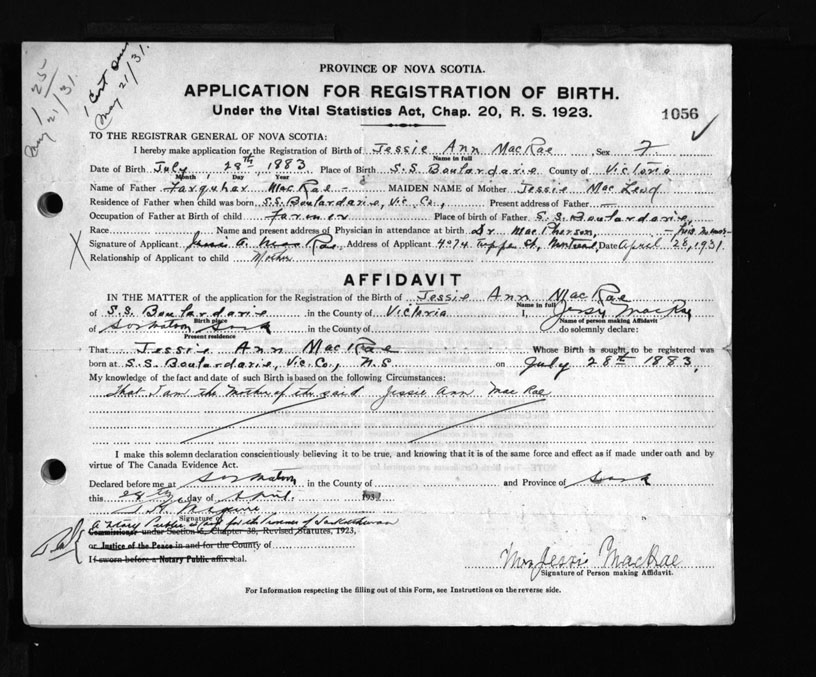 1 25
May 21/31.
1 Cert
May 21/31.
PROVINCE OF NOVA SCOTIA.
APPLICATION FOR REGISTRATION OF BIRTH.
Under the Vital Statistics Act, Chap. 20, R. S. 1923.
1056
TO THE REGISTRAR GENERAL OF NOVA SCOTIA:
I hereby make application for the Registration of Birth of Jessie Ann MacRae Sex F
Name in full
Date of Birth July 28th 1883 Place of Birth S.S. Boulardarie County of Victoria
Month Day Year
Name of Father Farquhar MacRae - MAIDEN NAME of Mother Jessie MacLeod
Residence of Father when child was born S.S. Boulardarie, Vic. Co., Present address of Father —
Occupation of Father at Birth of child Farmer Place of birth of Father S.S. Boulardarie,
Race Name and present address of Physician in attendance at birth Dr MacPherson,
Signature of Applicant Jessie A. MacRae Address of Applicant 4074 St, Montreal, Date April 28, 1931.
Relationship of Applicant to child Mother
AFFIDAVIT
IN THE MATTER of the application for the Registration of the Birth of Jessie Ann MacRae
Name in full
of S.S. Boulardarie in the County of Victoria I, Jessie MacRae
Birth place Name of person making Affidavit
of Saskatoon Sask in the County of do solemnly declare:
Present residence
That Jessie Ann MacRae Whose Birth is sought to be registered was
born at S.S. Boulardarie, Vic. Co., N.S on July 28th 1883,
My knowledge of the fact and date of such Birth is based on the following Circumstances:
That I am the Mother of the said Jessie Ann MacRae
I make this solemn declaration conscientiously believing it to be true, and knowing that it is of the same force and effect as if made under oath and by
virtue of The Canada Evidence Act.
Declared before me at Saskatoon in the County of and Province of Sask
this day of April 1931
Signature of
A Notary Public for the Province of Saskatchewan
Commissioner under Section 6, Chapter 38, Revised Statutes, 1923,
or Justice of the Peace in and for the County of
If sworn before a Notary Public affix seal.
Mrs Jessie MacRae
Signature of Person making Affidavit.
For Information respecting the filling out of this Form, see Instructions on the reverse side.